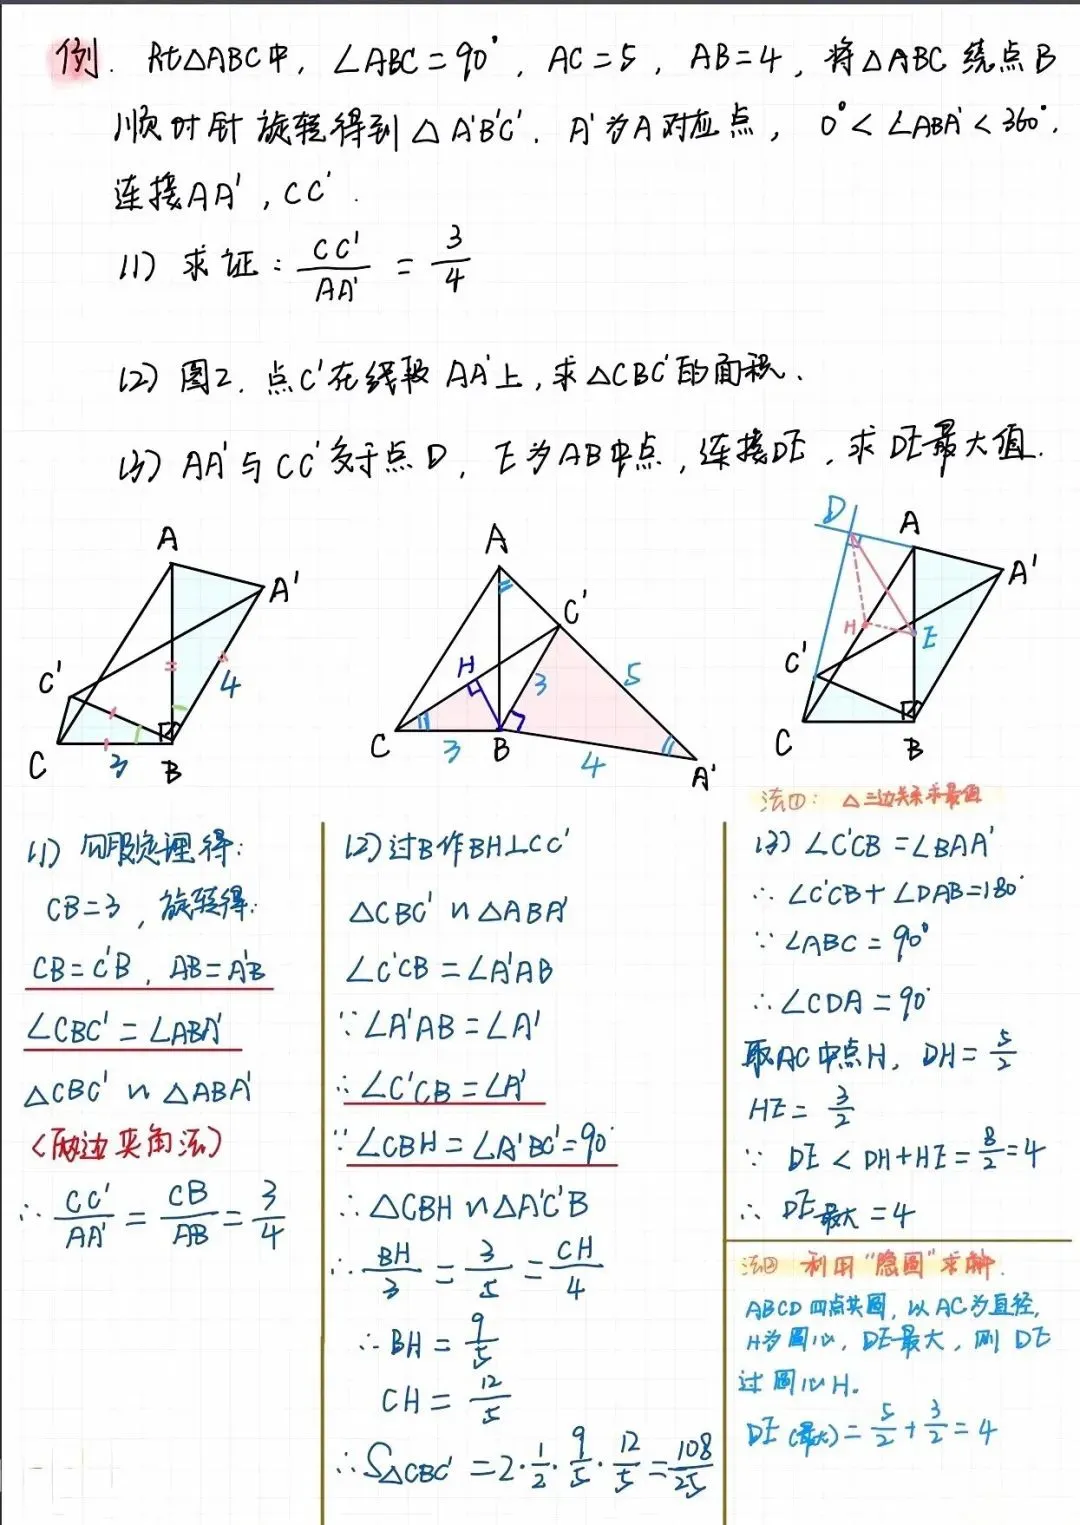 例. Rt△ABC中, ∠ABC=90°, AC=5, AB=4, 将△ABC绕点B
顺时针旋转得到△A'B'C'. A'为A对应点, 0°<∠ABA'<360°.
连接AA', CC'.
(1) 求证: CC'/AA' = 3/4
(2) 图2. 点C'在线段AA'上, 求△CBC'的面积.
(3) AA'与CC'交于点D, E为AB中点, 连接DE, 求DE最大值.
A
A'
C'
4
C
3
B
A
C'
H
3
5
C
3
B
4
A'
D
A
A'
H
E
C'
C
B
(1) 勾股定理得:
CB=3, 旋转得:
CB=C'B, AB=A'B
∠CBC'=∠ABA'
△CBC'∽△ABA'
(两边夹角法)
∴ CC'/AA' = CB/AB = 3/4
(2) 过B作BH⊥CC'
△CBC'∽△ABA'
∠C'CB=∠A'AB
∵∠A'AB=∠A'
∴∠C'CB=∠A'
∵∠CBH=∠A'BC'=90°
∴△CBH∽△A'C'B
∴ BH/3 = 3/5 = CH/4
∴BH=9/5
CH=12/5
∴S△CBC'=2·1/2·9/5·12/5=108/25
法①: △三边关系求最值
(3) ∠C'CB=∠BAA'
∴∠C'CB+∠DAB=180°
∵∠ABC=90°
∴∠CDA=90°
取AC中点H, DH=5/2
HE=3/2
∵ DE<DH+HE=8/2=4
∴ DE最大=4
法② 利用“隐圆”求解.
ABCD四点共圆, 以AC为直径,
H为圆心, DE最大, 则DE
过圆心H.
DE(最大)=5/2+3/2=4